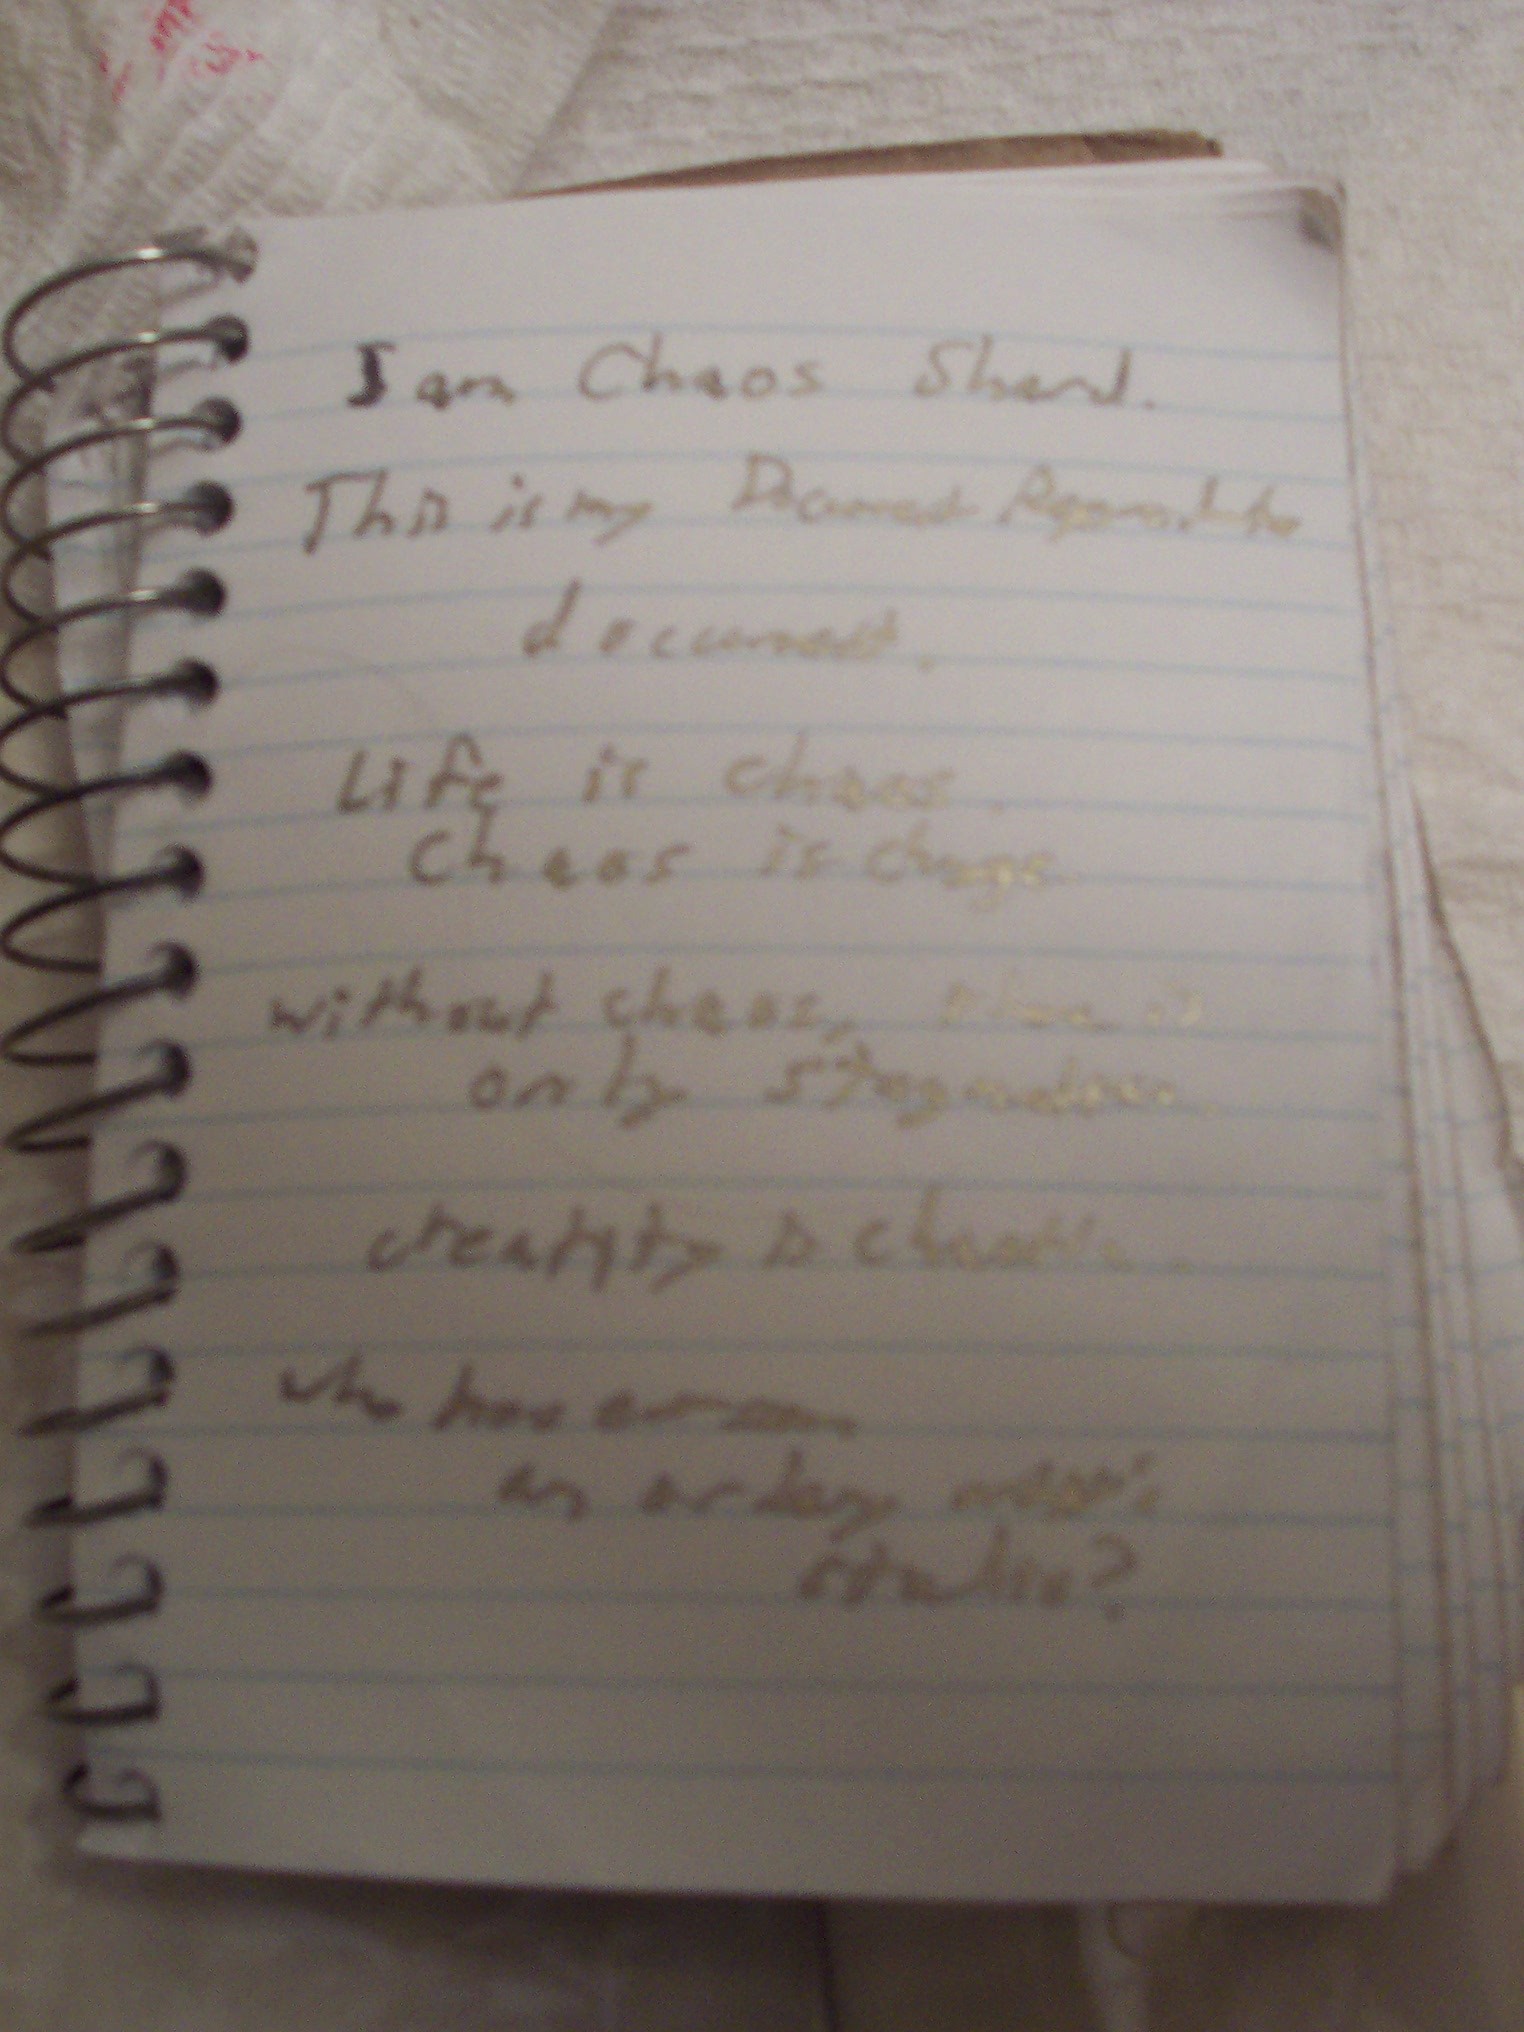 I am Chaos Shard.
This is my Document
document.
Life is chaos.
Chaos is change.
without chaos, there is
only stagnation.
creativity is chaotic.
who has ever seen
an orderly